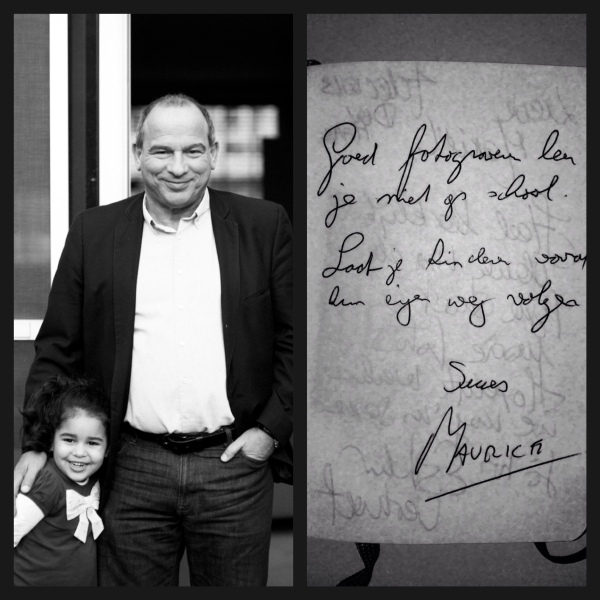 Goed fotograferen leer
je niet op school.
Laat je kinderen vooral
hun eigen weg volgen
Succes
MAURICE